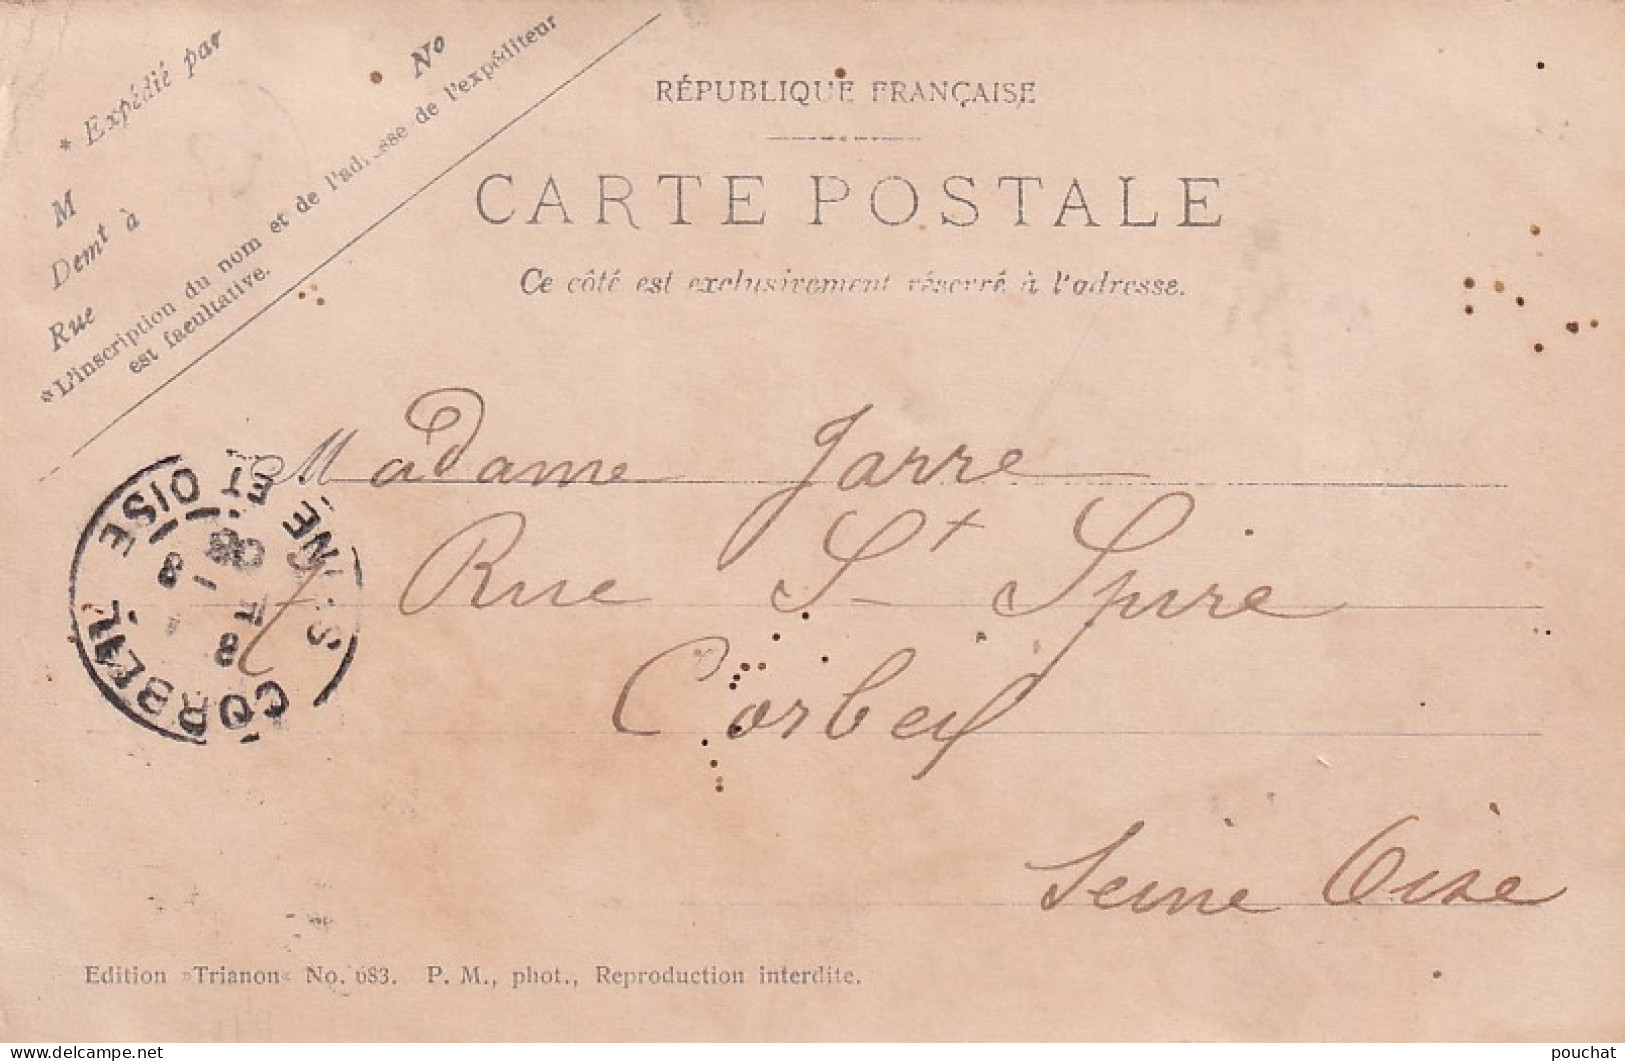 * Expédié par
No
M
Demt à
Rue
*L'inscription du nom et de l'adresse de l'expéditeur
est facultative.
RÉPUBLIQUE FRANÇAISE
CARTE POSTALE
Ce côté est exclusivement réservé à l'adresse.
Madame Jarre
7 Rue St Spire
Corbeil
Seine Oise
CORBEIL
SEINE ET OISE
Edition »Trianon« No. 683. P. M., phot., Reproduction interdite.
pouchat
© delcampe.net